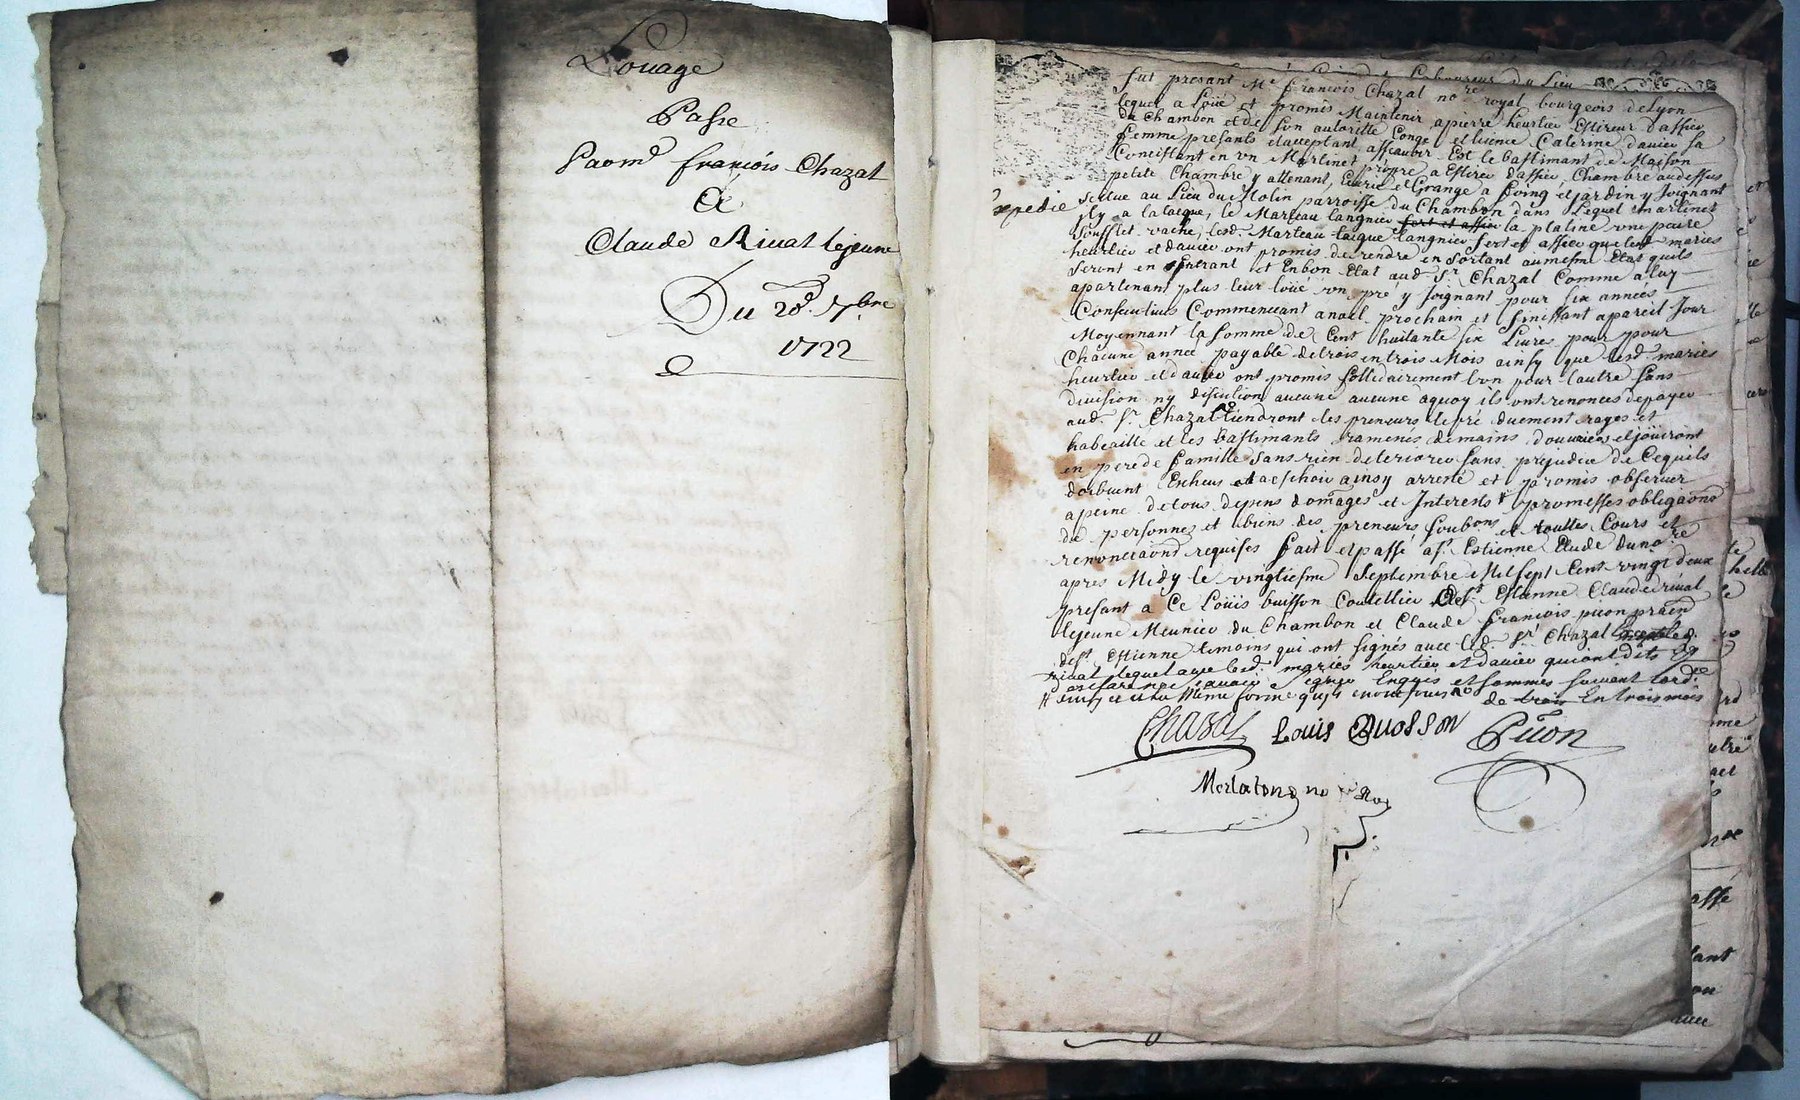 Louage
Passé
Par me françois Chazal
A
Claude Riuat lejeune
Du 20e 7bre
1722
fut presant Me françois Chazal nore royal bourgeois de Lyon
lequel a Loüé et promis Maintenir a pierre heurtier Estireur d'assier
du Chambon et de son autoritte Congé et licence Caterine dauier sa
femme presants et acceptant assauoir Est le bastimant de Maison
Concistant en vn Martinet propre a Estirer dassier, Chambre audessus
petite Chambre y attenant, Ecurie et Grange a foing et jardin y Joignant
expedié
scitue au Lieu du Molin parroisse du Chambon dans Lequel martinet
il y a la taque, le Marteau langnier fert et assier la platine vne paire
soufflet vache, lesd. Marteau taique langnier fert et assier que lesd maries
heurtier et dauier ont promis de rendre en sortant aumesme Etat quils
seront en Entrant et Enbon Etat aud Sr Chazal Comme a luy
apartenant plus leur loüe vn pré y Joignant pour six années
Consecutiues Commencant anoel prochain et finissant apareil Jour
Moyennant la somme de Cent huitante six Liures pour
Chacune annee payable de trois en trois Mois ainsy que lesd maries
heurtier et dauier ont promis sollidairement lvn pour lautre sans
diuision ny discution aucune aucune aquoy ils ont renoncés depayer
aud. Sr Chazal tiendront les preneurs le pré duement rages et
habeaille et les bastimants ramenés demains douuriers et joüiront
en pere de famille sans rien deteriorer sans prejudice de Cequils
doibuent Escheus et a Eschoir ainsy arresté et promis obseruer
apeine de tous depens domages et Interests promesses obligaons
de personnes et biens des preneurs soubons et touttes Cours et
renonciaons requises fait et passé a St Estienne Etude dunore
apres Midy le vingtiesme Septembre Mil sept Cent vingt deux
presant a Ce Loüis buisson Coutellier de St Estienne Claude riuat
lejeune Meunier du Chambon et Claude françois picon praen
de St Estienne temoins qui ont signés auec led. Sr Chazal
riuat lequel auec lesd. mariés heurtier et dauier quiont dits
sauoir signer Enquis et sommes suiuant lord.ce
de trois En trois mois
Chazal Louis Buosson Picon